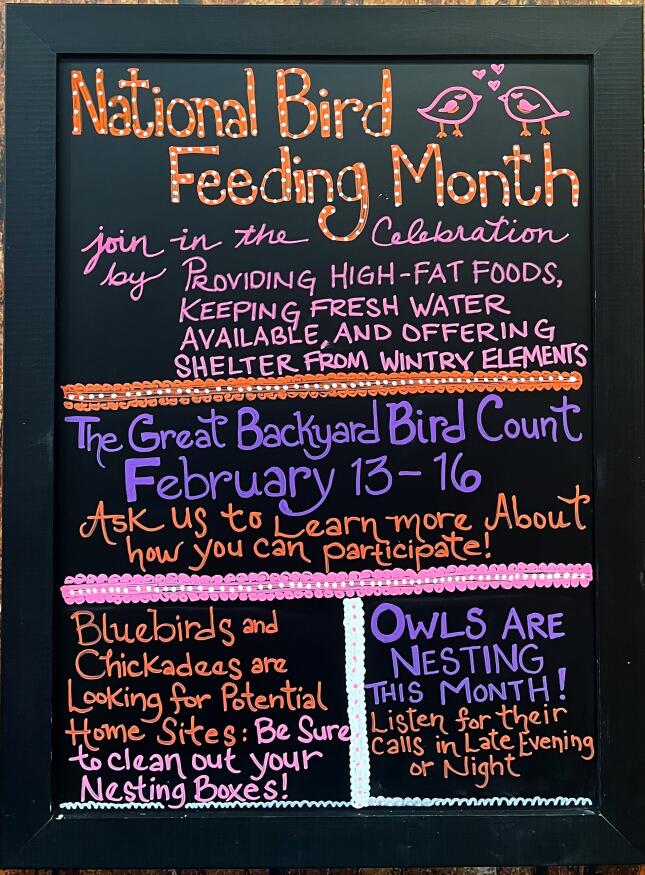 National Bird
Feeding Month
join in the Celebration
by PROVIDING HIGH-FAT FOODS,
KEEPING FRESH WATER
AVAILABLE, AND OFFERING
SHELTER FROM WINTRY ELEMENTS
The Great Backyard Bird Count
February 13-16
Ask us to Learn more About
how you can participate!
Bluebirds and
Chickadees are
Looking for Potential
Home Sites: Be Sure
to clean out your
Nesting Boxes!
OWLS ARE
NESTING
THIS MONTH!
Listen for their
calls in Late Evening
or Night